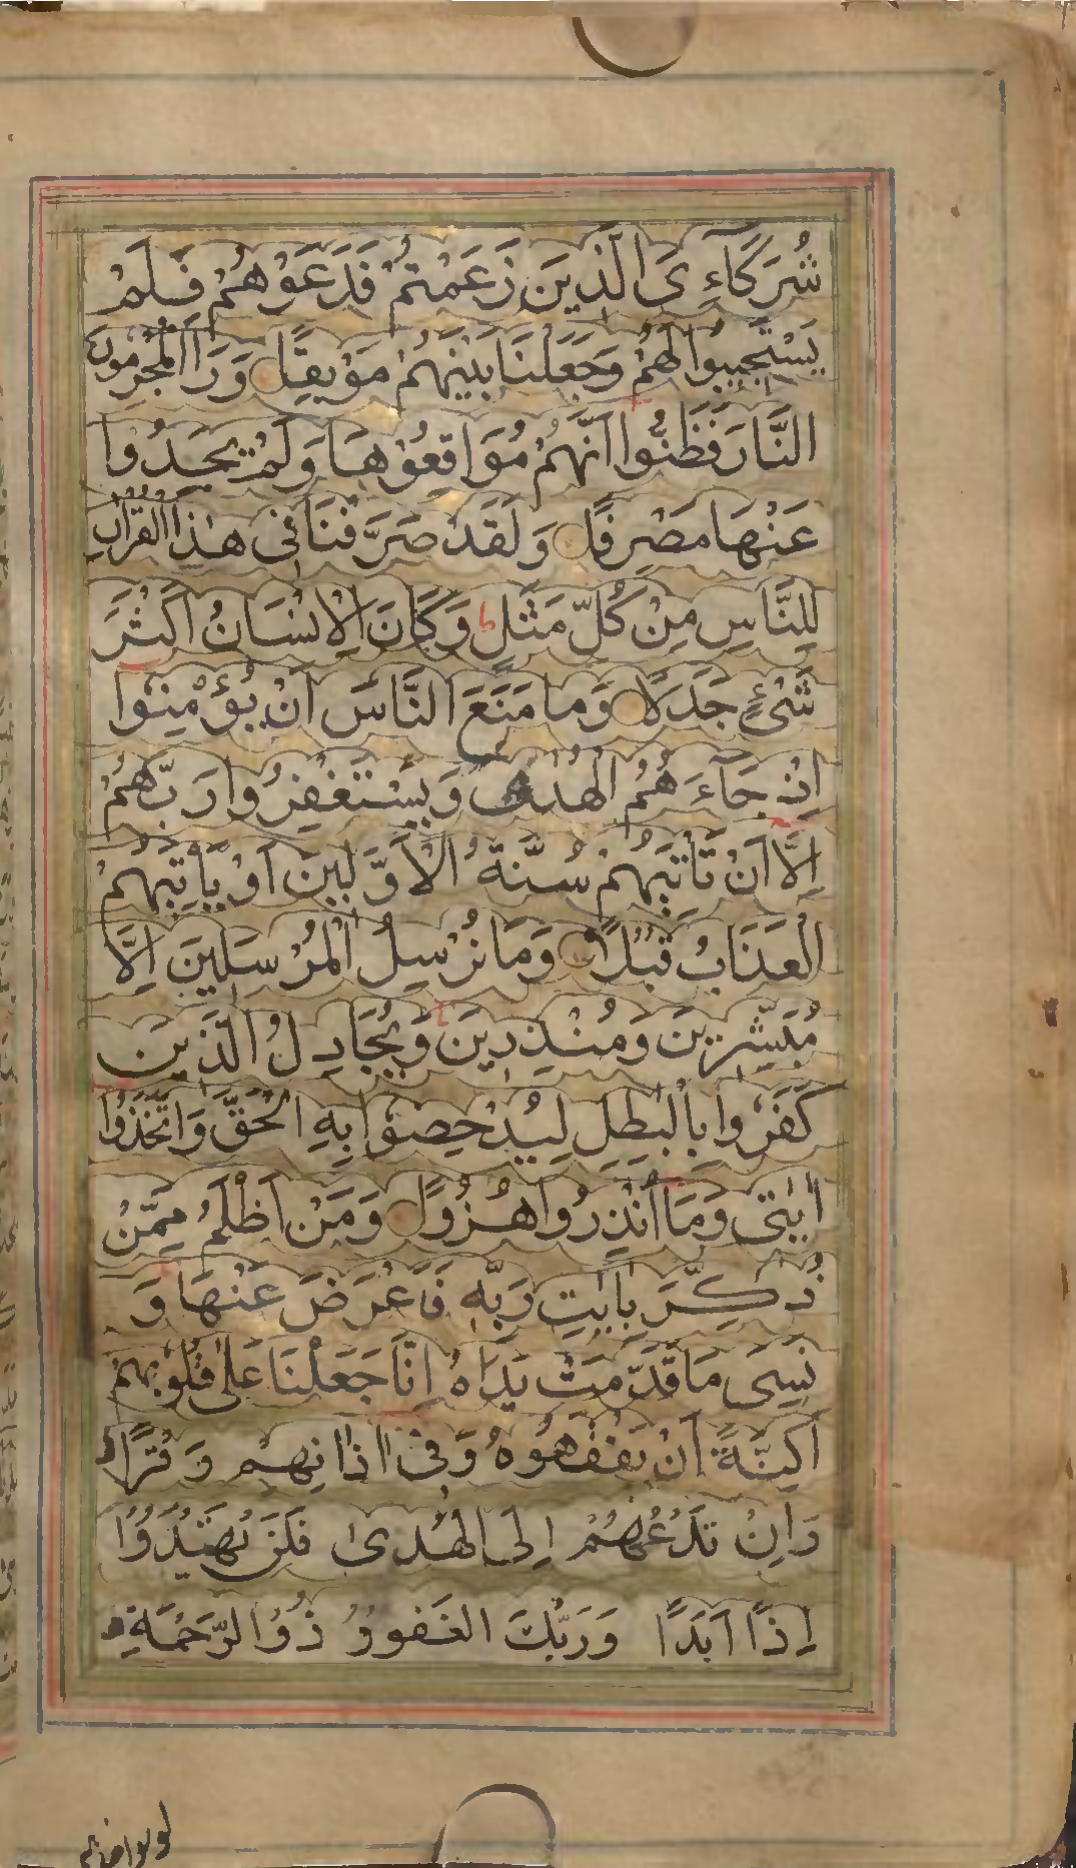 شُرَكَاءِىَ الَّذِينَ زَعَمْتُمْ فَدَعَوْهُمْ فَلَمْ
يَسْتَجِيبُوا لَهُمْ وَجَعَلْنَا بَيْنَهُمْ مَوْبِقًا وَرَاَ الْمُجْرِمُونَ
النَّارَ فَظَنُّوا اَنَّهُمْ مُوَاقِعُوْهَا وَلَمْ يَجِدُوا
عَنْهَا مَصْرِفًا وَلَقَدْ صَرَّفْنَا فِى هٰذَا الْقُرْاٰنِ
لِلنَّاسِ مِنْ كُلِّ مَثَلٍ ط وَكَانَ الْاِنْسَانُ اَكْثَرَ
شَىْءٍ جَدَلًا وَمَا مَنَعَ النَّاسَ اَنْ يُؤْمِنُوا
اِذْ جَآءَ هُمُ الْهُدٰى وَيَسْتَغْفِرُوا رَبَّهُمْ
اِلَّا اَنْ تَأْتِيَهُمْ سُنَّةُ الْاَوَّلِينَ اَوْ يَأْتِيَهُمُ
الْعَذَابُ قُبُلًا وَمَا نُرْسِلُ الْمُرْسَلِينَ اِلَّا
مُبَشِّرِينَ وَمُنْذِرِينَ ط وَيُجَادِلُ الَّذِينَ
كَفَرُوا بِالْبٰطِلِ لِيُدْحِضُوا بِهِ الْحَقَّ وَاتَّخَذُوا
اٰيٰتِى وَمَا اُنْذِرُوا هُزُوًا وَمَنْ اَظْلَمُ مِمَّنْ
ذُكِّرَ بِاٰيٰتِ رَبِّهٖ فَاَعْرَضَ عَنْهَا وَ
نَسِىَ مَا قَدَّمَتْ يَدَاهُ اِنَّا جَعَلْنَا عَلٰى قُلُوْبِهِمْ
اَكِنَّةً اَنْ يَفْقَهُوْهُ وَفِى اٰذَانِهِمْ وَقْرًا
وَاِنْ تَدْعُهُمْ اِلَى الْهُدٰى فَلَنْ يَهْتَدُوْا
اِذًا اَبَدًا وَرَبُّكَ الْغَفُوْرُ ذُوْ الرَّحْمَةِ